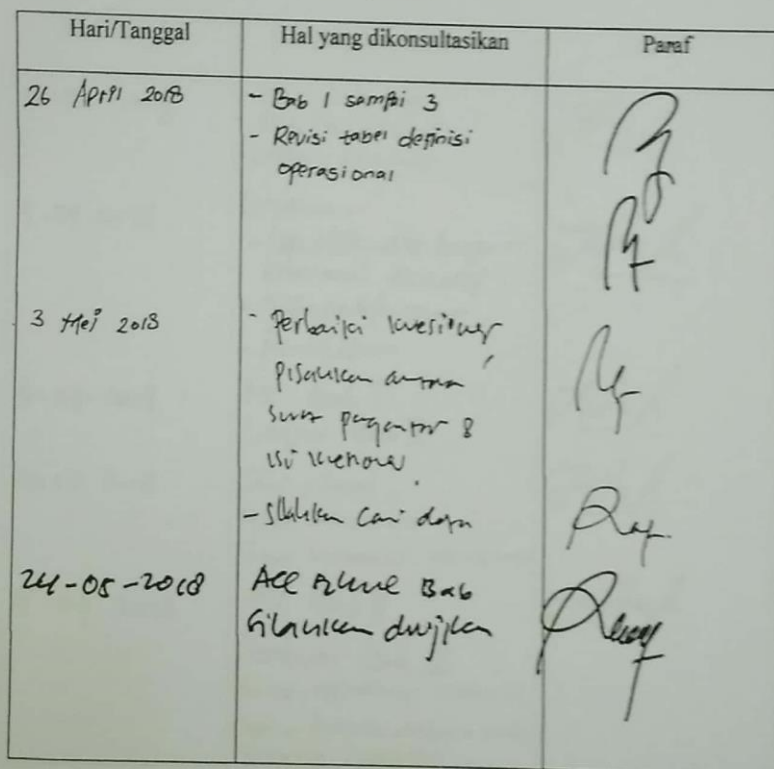 Hari/Tanggal Hal yang dikonsultasikan Paraf
26 April 2018 - Bab 1 sampai 3
- Revisi tabel definisi
operasional
3 Mei 2018 - Perbaiki kuesioner
pisahkan antara
surat pengantar &
isi kuesioner
- Silahkan cari data
24-05-2018 Acc Bab
Silahkan diujikan